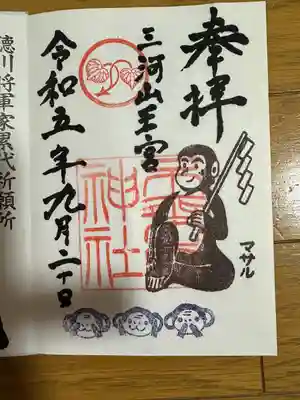 奉拝
三河山王宮
神社
マサル
令和五年九月二十日
徳川将軍家累代祈願所